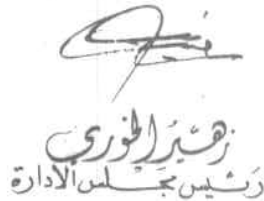 زهير الخوري
رئيس مجلس الادارة